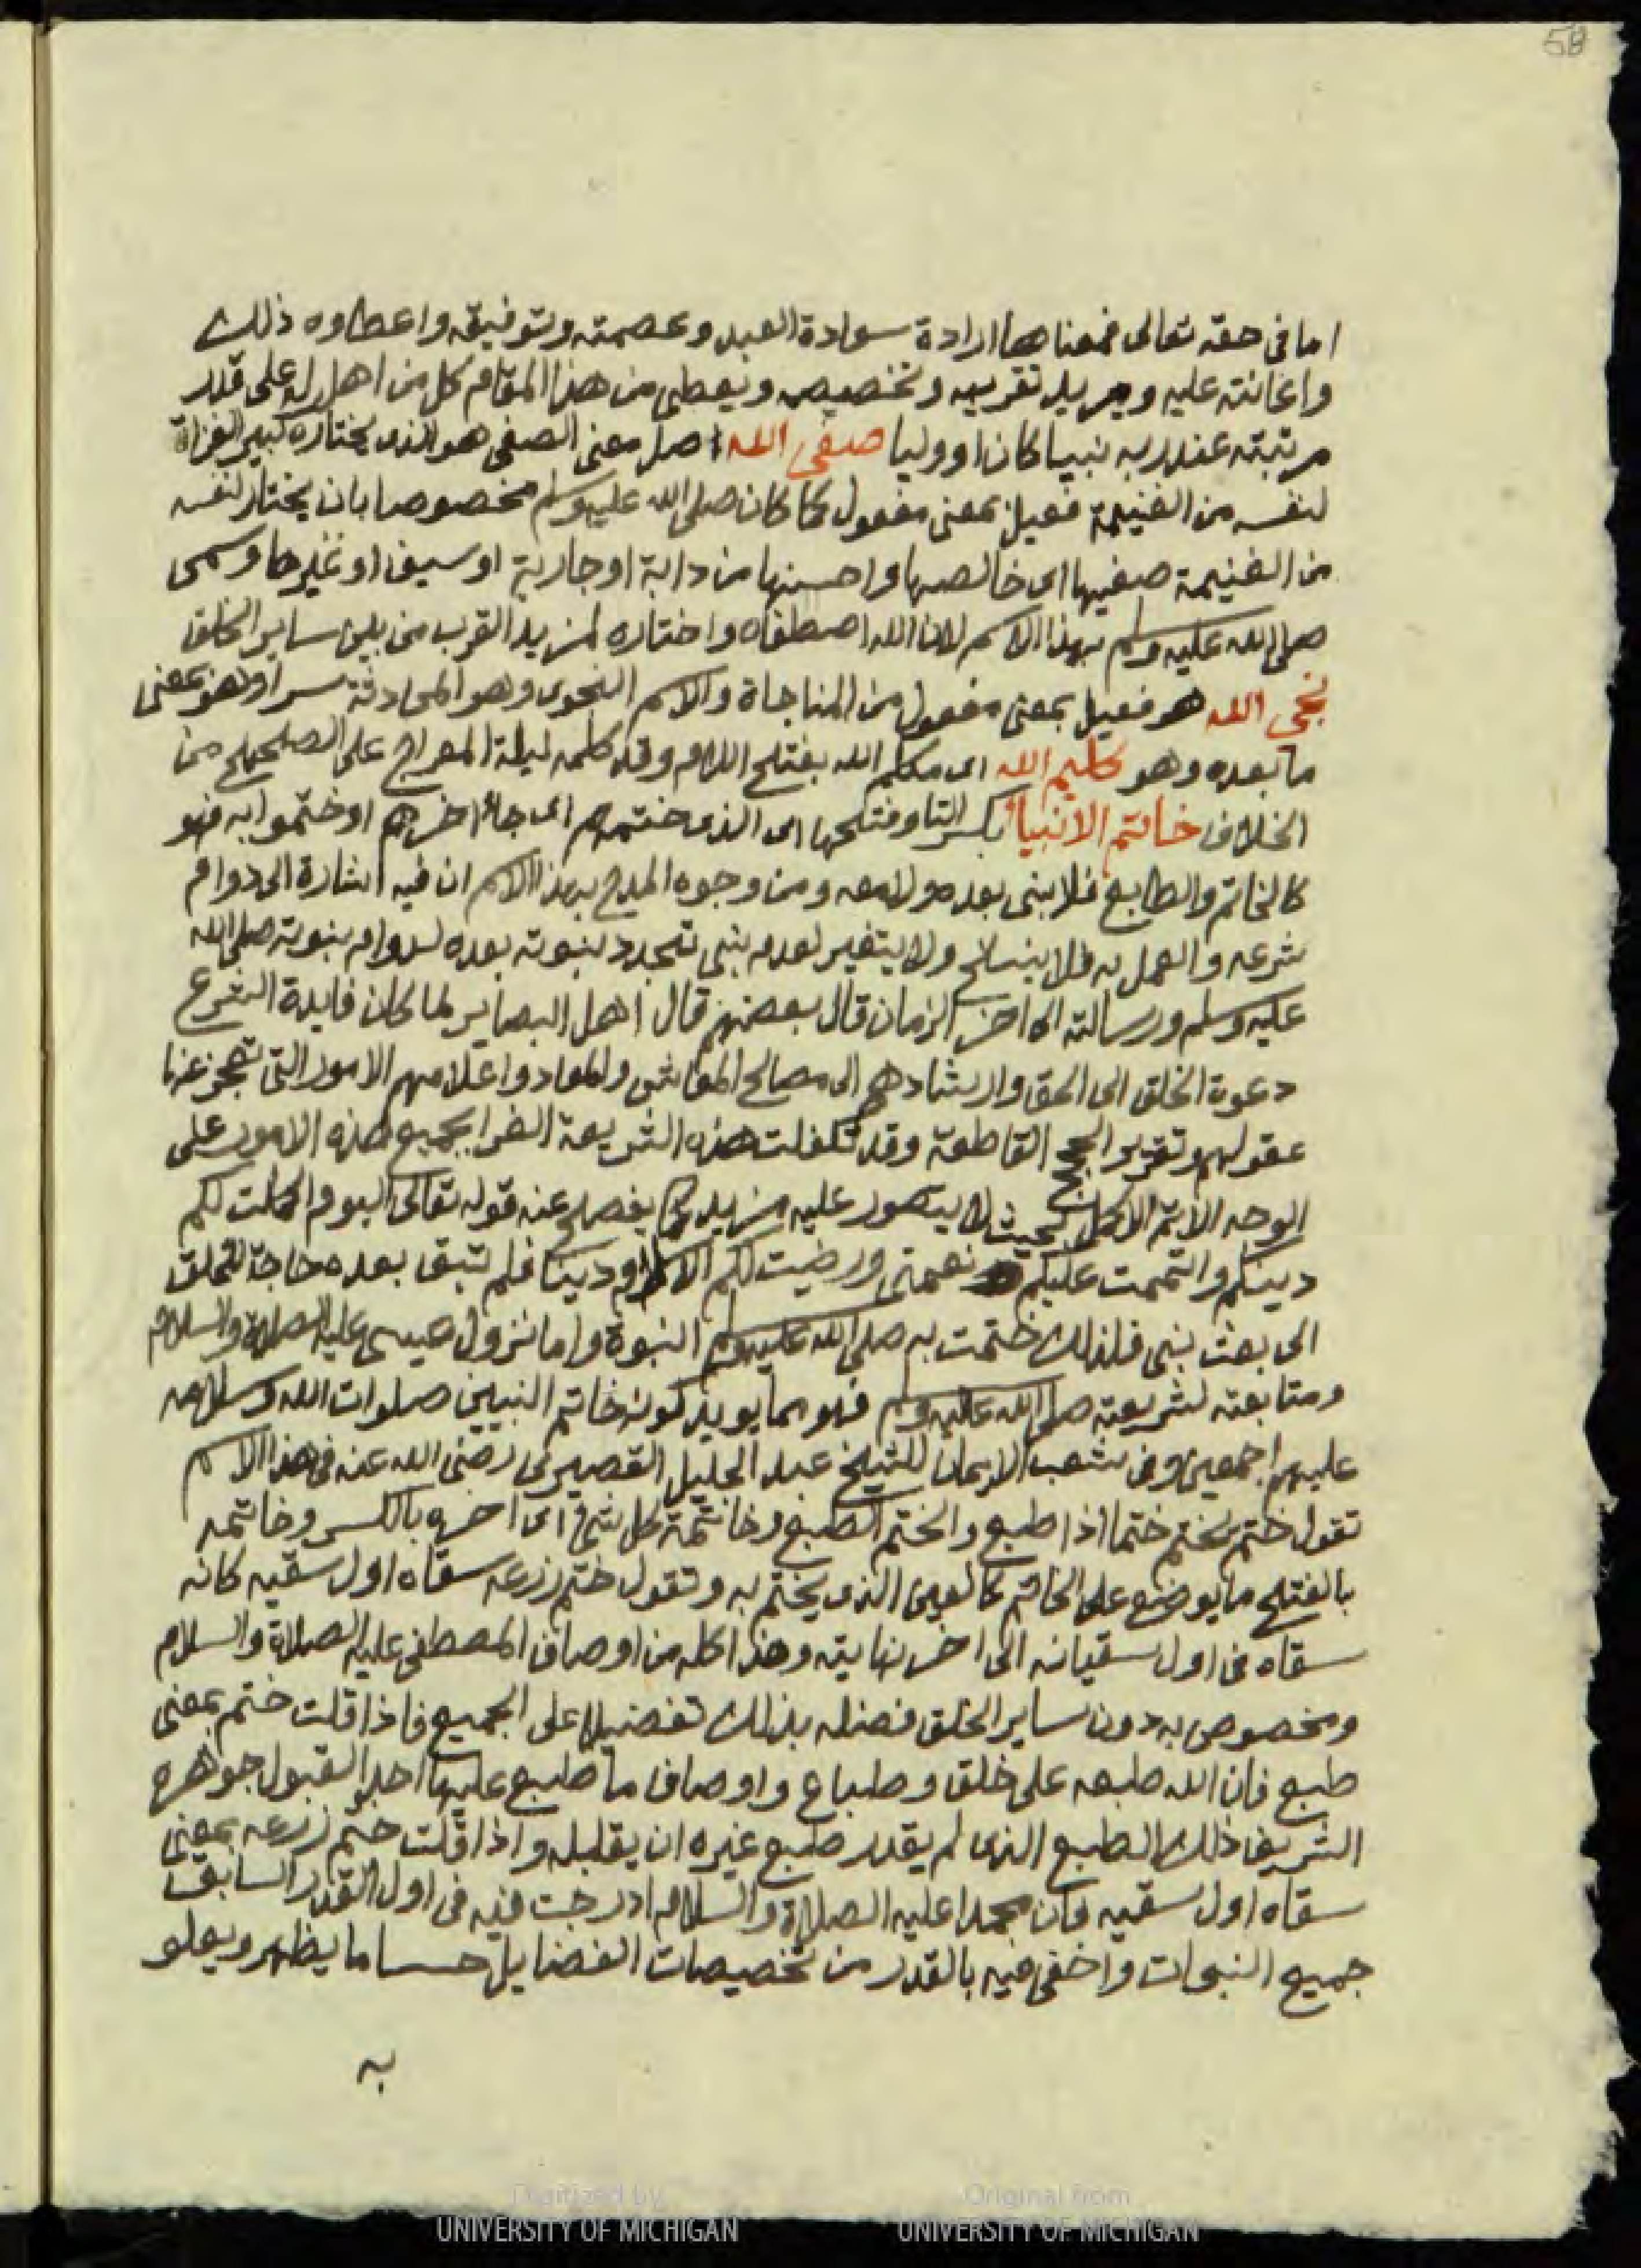 58
اما في حقه تعالى فمعناهما ارادة سعادة العبد وعصمته وتوفيقه واعطاوه ذلك
واعانته عليه ومريد تقريبه وتخصيصه ويعطى من هذا المقام كل من اهل له على قدر
مرتبته عند ربه نبيا كان او وليا صفي الله اصل معنى الصفي هو الذى يختاره كبير الغزاة
لنفسه من الغنيمة فعيل بمعنى مفعول كما كان صلى الله عليه وسلم مخصوصا بان يختار لنفسه
من الغنيمة صفيها اى خالصها واحسنها من دابة او جارية او سيف او غيرها وسمى
صلى الله عليه وسلم بهذا الاسم لان الله اصطفاه واختاره لمزيد القرب من بين ساير الخلق
نجى الله هو فعيل بمعنى مفعول من المناجاة والاسم النجوى وهو المحادثة سرا وهو بمعنى
ما بعده وهو كليم الله اى مكلم الله بفتح اللام وقد كلمه ليلة المعراج على الصحيح من
الخلاف خاتم الانبيا بكسر التا وفتحها اى الذى ختمهم اى جا اخرهم او ختموا به فهو
كالخاتم والطابع فلا نبى بعده ولا معه ومن وجوه المدح بهذا الاسم ان فيه اشارة الى دوام
شرعه والعمل به فلا ينسخ ولا يتغير لعدم نبى تجدد نبوته بعده لدوام نبوته صلى الله
عليه وسلم ورسالته الى اخر الزمان قال بعضهم قال اهل البصاير لما كان فايدة الشرع
دعوة الخلق الى الحق وارشادهم الى مصالح المعاش والمعاد واعلامهم الامور التى تعجز عنها
عقولهم وتقرير الحجج القاطعة وقد تكفلت هذه الشريعة الغرا بجميع هذه الامور على
الوجه الاتم الاكمل بحيث لا يتصور عليه مزيد كما يفصح عنه قوله تعالى اليوم اكملت لكم
دينكم واتممت عليكم نعمتى ورضيت لكم الاسلام دينا فلم تبق بعده حاجة للخلق
الى بعث نبى فلذلك ختمت به صلى الله عليه وسلم النبوة واما نزول عيسى عليه الصلاة والسلام
ومتابعته لشريعته صلى الله عليه وسلم فهو مما يويد كونه خاتم النبيين صلوات الله وسلامه
عليهم اجمعين وفى شعب الايمان للشيخ عبد الجليل القصيرى رضى الله عنه فى هذا الاسم
تقول ختم يختم ختما اذا طبع والختم الطبع وخاتمة كل شى اى اخره بالكسر وخاتمه
بالفتح ما يوضع على الخاتم كالعين الذى يختم به وتقول ختم زرعه سقاه اول سقيه كانه
سقاه فى اول سقيانه الى اخر نهايته وهذا كله من اوصاف المصطفى عليه الصلاة والسلام
ومخصوص به دون ساير الخلق فضله بذلك تفضيلا على الجميع فاذا قلت ختم بمعنى
طبع فان الله طبعه على خلق وطباع واوصاف ما طبع عليها احد القبول جوهره
الشريف ذلك الطبع الذى لم يقدر طبع غيره ان يقابله واذا قلت ختم زرعه بمعنى
سقاه اول سقيه فان محمدا عليه الصلاة والسلام ادرجت فيه فى اول القدر السابق
جميع النبوات واخفى فيه بالقدر من تخصيصات الفضايل حسا ما يظهر ويعلو
به
Digitized by UNIVERSITY OF MICHIGAN
Original from UNIVERSITY OF MICHIGAN